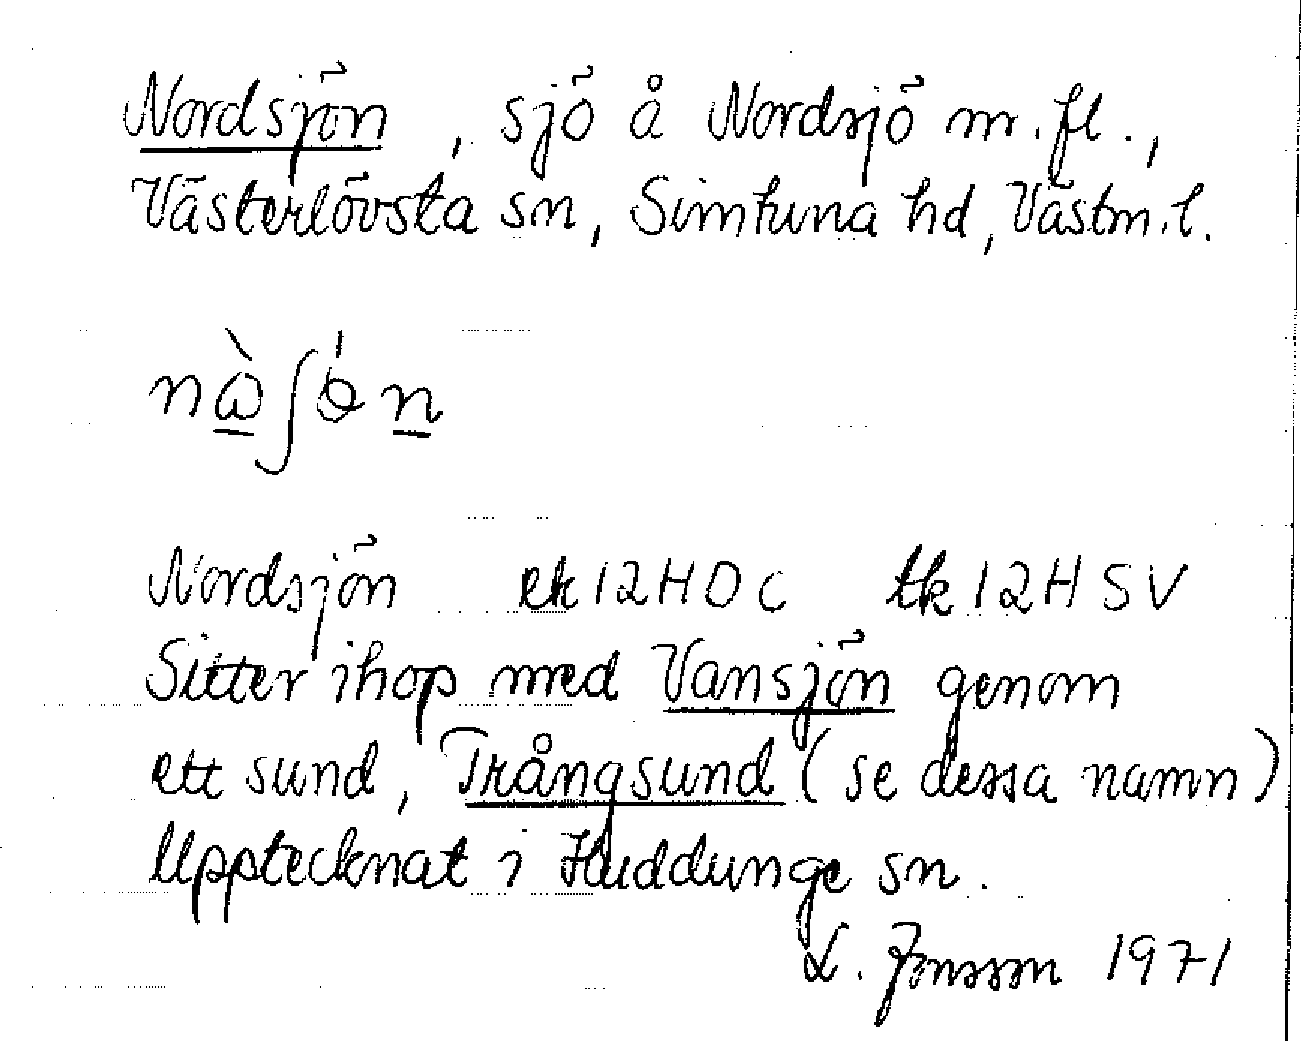 Nordsjön, sjö å Nordsjö m.fl.,
Västerlövsta sn, Simtuna hd, Västm.l.
nὼʃɵ́n
Nordsjön ek 12H0c tk 12HSV
Sitter ihop med Vansjön genom
ett sund, Trångsund (se dessa namn)
Upptecknat i Huddunge sn.
L. Jonsson 1971